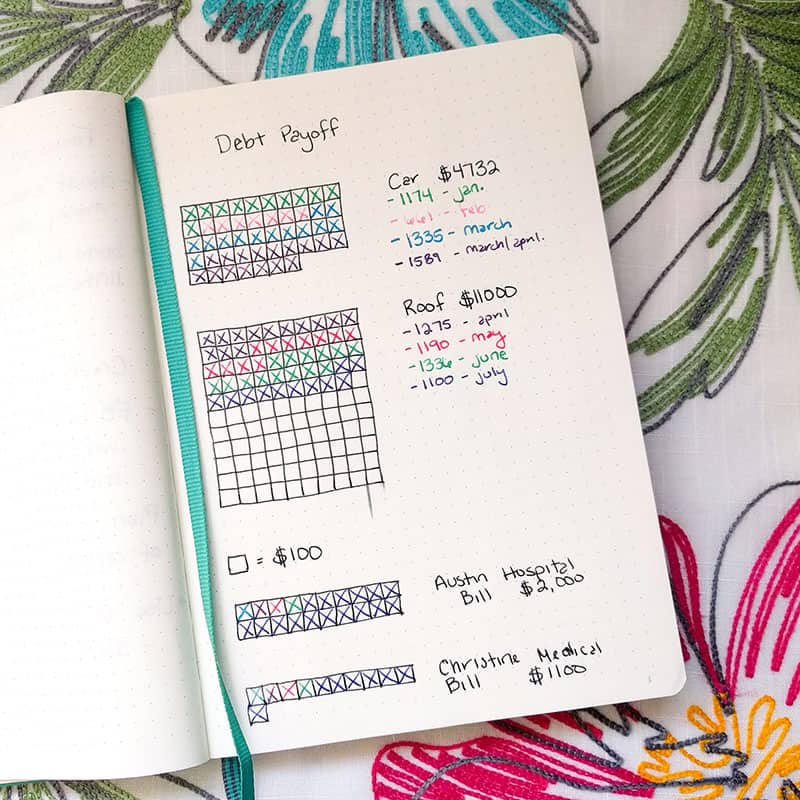 Debt Payoff
Car $4732
- 1174 - jan.
- 661 - feb
- 1335 - march
- 1589 - march/april.
Roof $11000
- 1275 - april
- 1190 - may
- 1336 - june
- 1100 - july
= $100
Austin Hospital
Bill $2,000
Christine Medical
Bill $1100